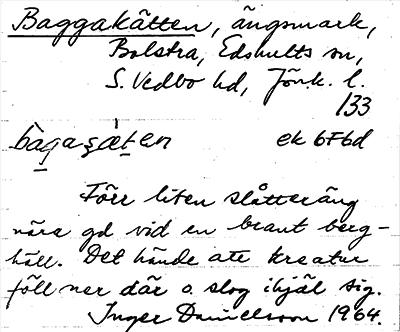 Baggakätten, ängsmark,
Bolstra, Edshults sn,
S. Vedbo hd, Jönk. l.
133
bàgaşǽten ek 6F6d
Förr liten slåtteräng
nära gd vid en brant berg-
häll. Det hände att kreatur
föll ner där o. slog ihjäl sig.
Inger Danielsson 1964.